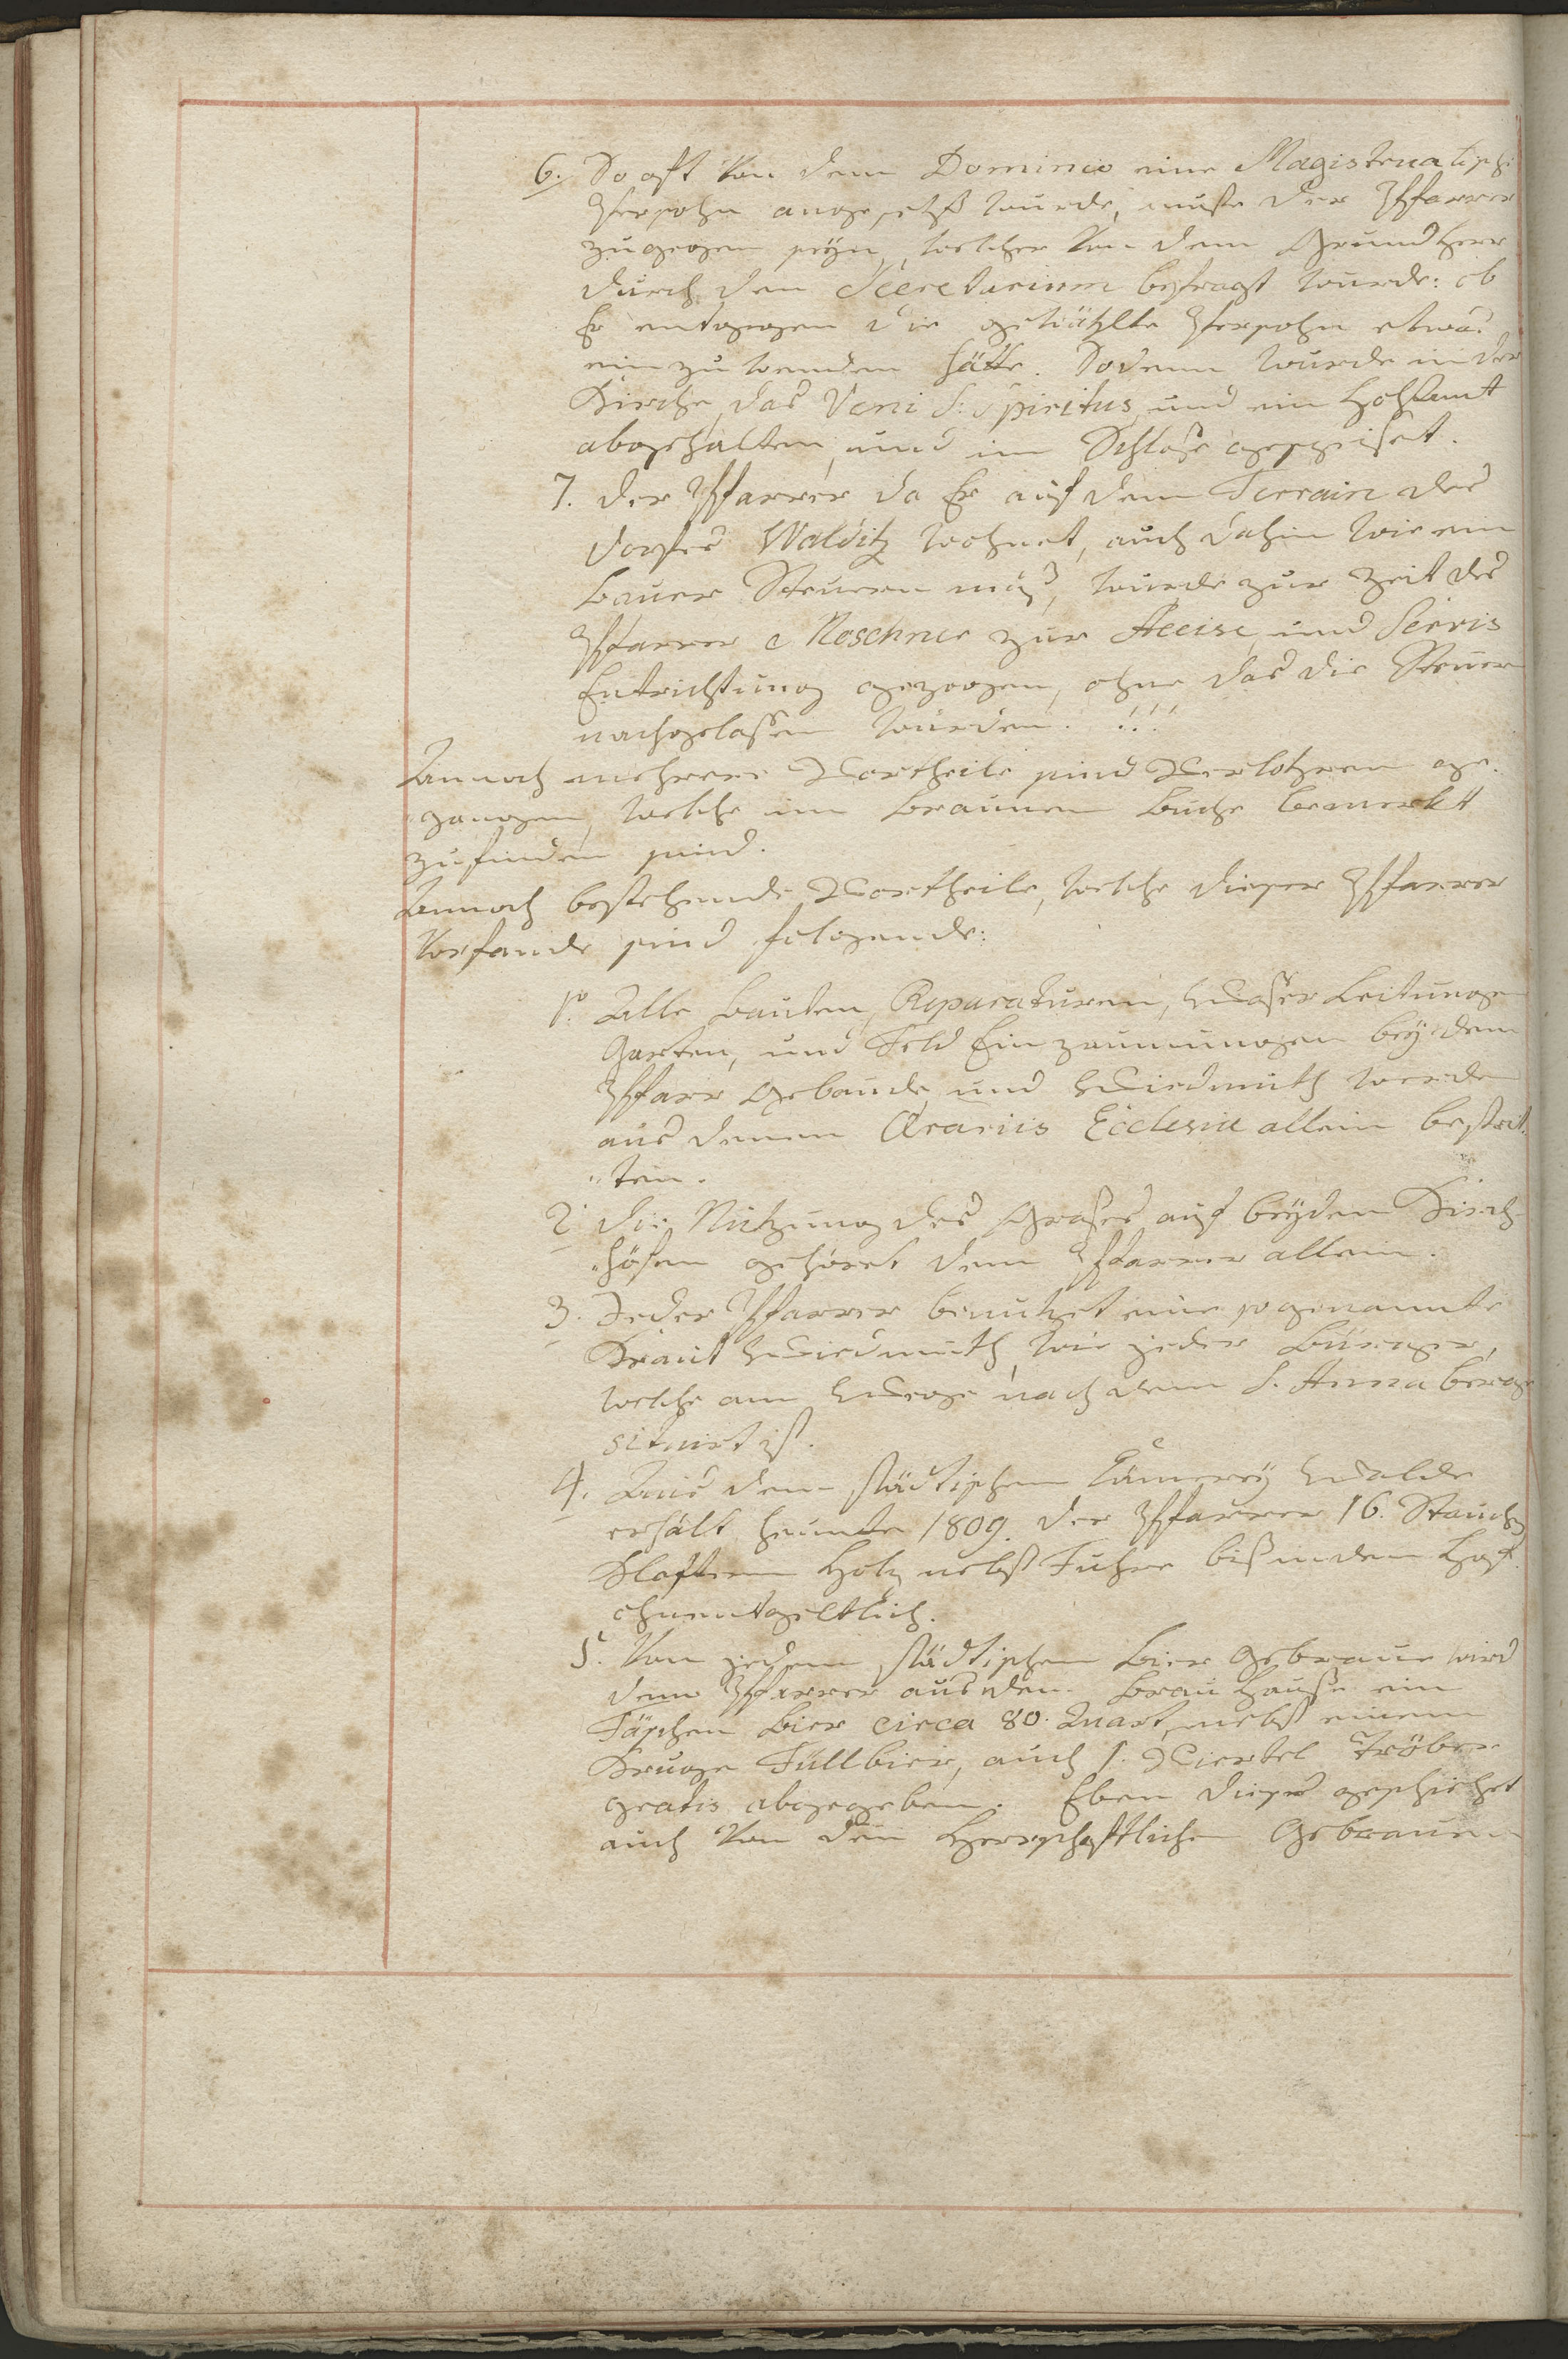 6. So oft von dem Dominio eine Magistratische
Persohn angesetzt wurde, muste der Pfarrer
zugegen seyn, welcher von dem Grundherr
durch den Secretarium befragt wurde: ob
Er entgegen die gewählte Persohn etwas
einzuwenden hätte. Sodenn wurde in der
Kirche, das Veni S: Spiritus, und ein Hohamt
abgehalten, und im Schloße gespeiset.
7. Der Pfarrer da Er auf dem Terrain des
Dorfes Walditz wohnet, auch dahin wie ein
Bauer Steuern muß, wurde zur Zeit des
Pfarrer Noschner zur Accise, und Servis
Entrichtung gezogen, ohne das die Steuern
nachgelaßen wurden. !!!
Annoch mehrere Vortheile sind Verlohren ge-
gangen, welche im Braunen Buche bemerkt
zufinden sind.
Annoch bestehende Vortheile, welche dieser Pfarrer
vorfande sind folgende:
1o. Alle Bauten, Reparaturen, Waßer Leitungen
Garten, und Feld Einzaunungen bey dem
Pfarr Gebaude, und Wiedmuth werden
aus denen Ærariis Ecclesiæ allein bestrit-
ten.
2. Die Nutzung des Graßes auf beyden Kirch-
höfen gehöret dem Pfarrer allein.
3. Jeder Pfarrer benutzet eine sogenannte
Kraut Wiedmuth, wie jeder Bürger,
welche am Wege nach dem S. Anna berge
situirt ist.
4. Aus dem städtischen Cämerey Walde
erhält heunte 1809. der Pfarrer 16. Stauch
Klaftern Holz nebst Fuhre bis in den Hof
ohnendgeltlich.
5. Von jedem städtischen Bier Gebraue wird
dem Pfarrer aus dem Brau Hauße ein
Fäßchen Bier circa 80. Quart, nebst einem
Kruge Füllbier, auch 1. Viertel Tröber
gratis abgegeben. Eben dieses geschiehet
auch von den Herrschaftlichen Gebrauen